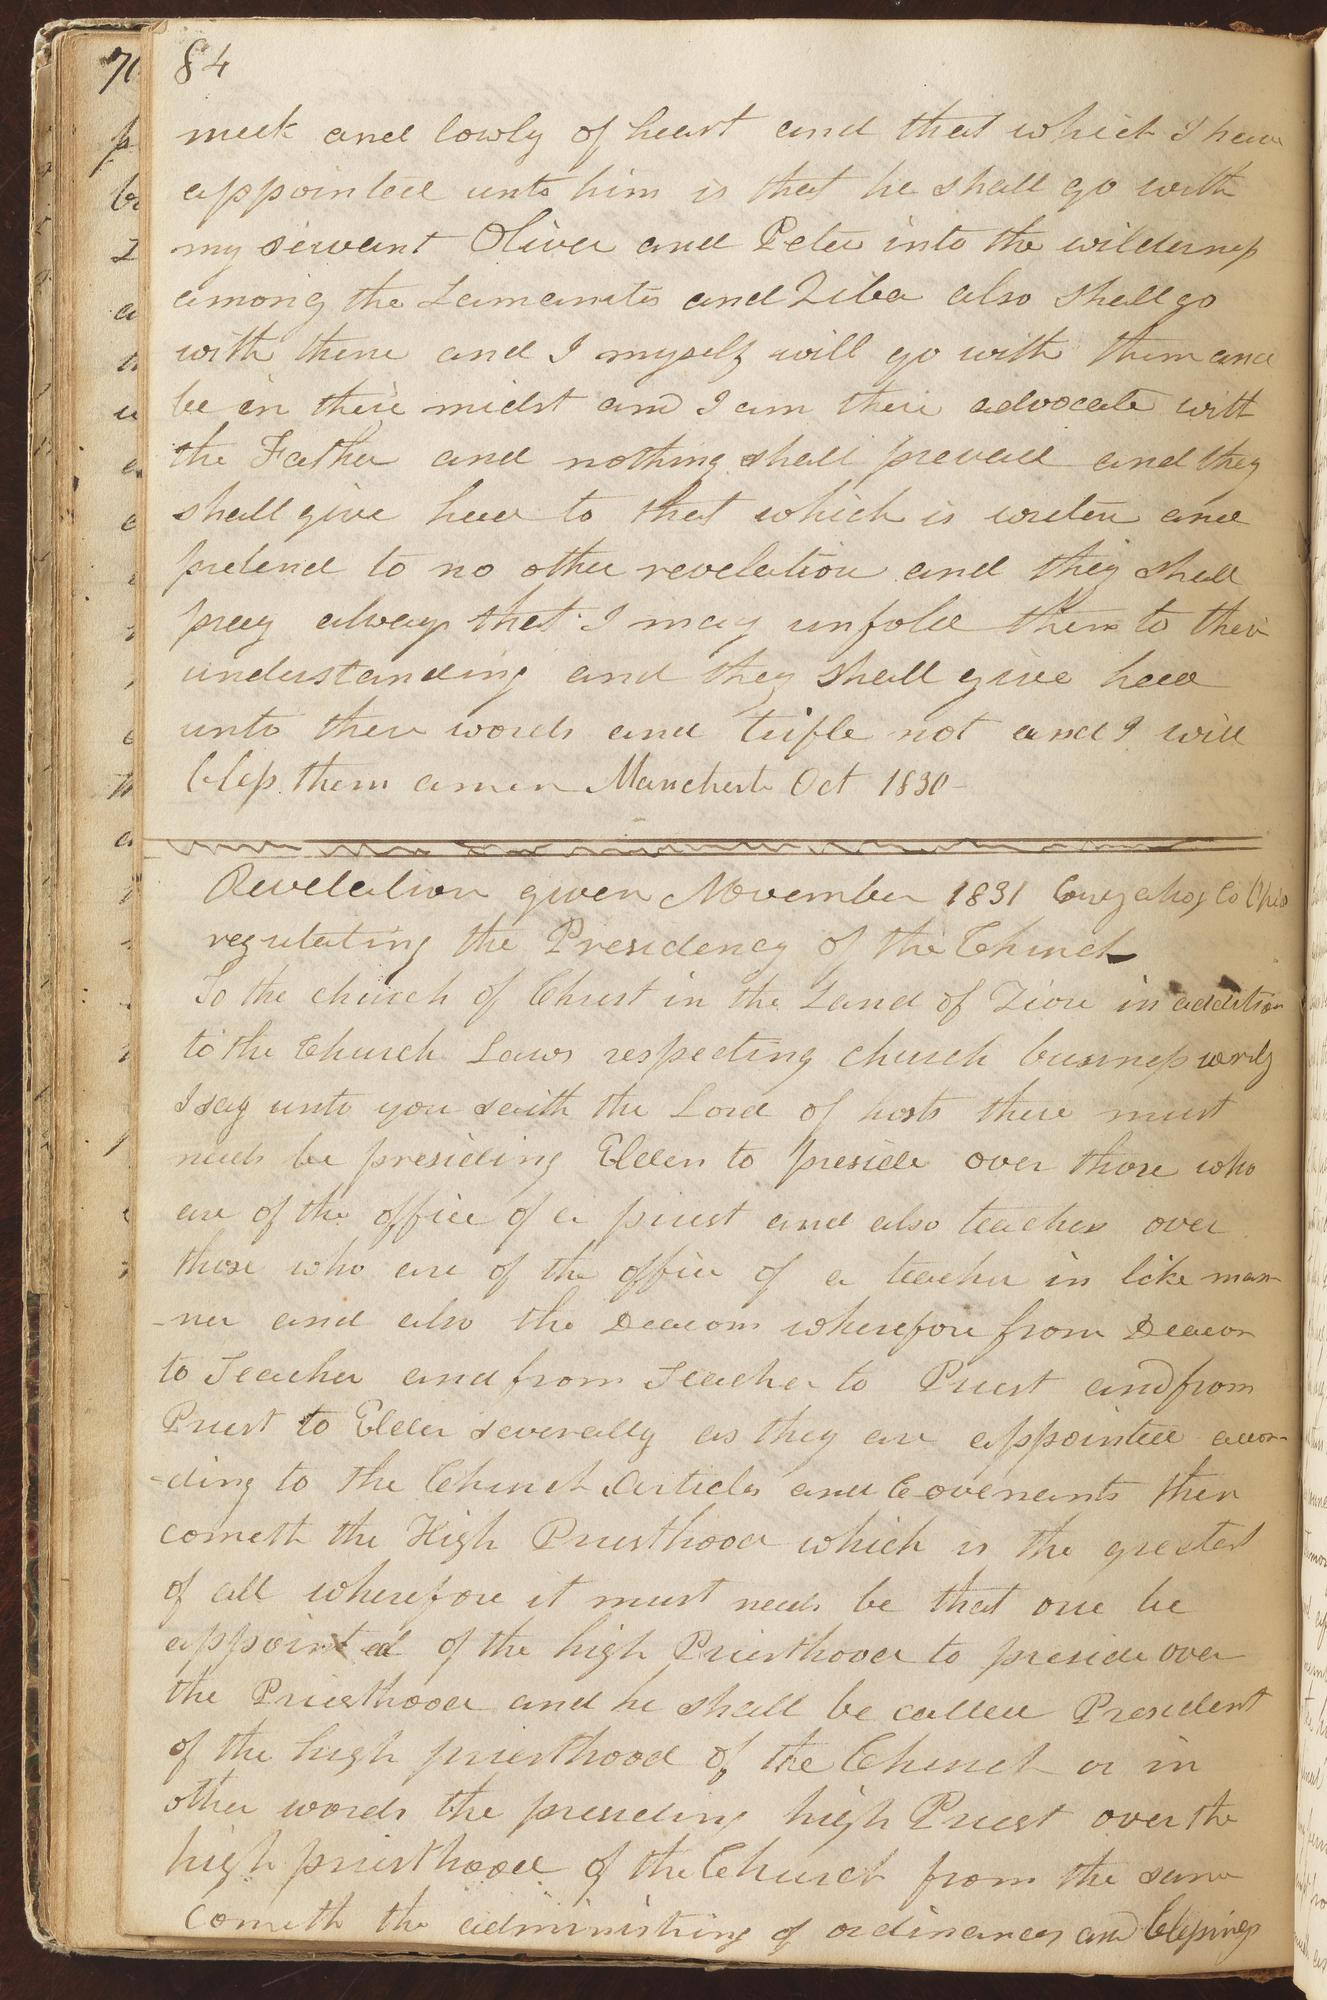 84
meek and lowly of heart and that which I have
appointed unto him is that he shall go with
my servant Oliver and Peter into the wilderness
among the Lamanites and Ziba also shall go
with them and I myself will go with them and
be in their midst and I am their advocate with
the Father and nothing shall prevail and they
shall give heed to that which is writen and
pretend to no other revelation and they shall
pray always that I may unfold them to their
understanding and they shall give heed
unto these words and trifle not and I will
bless them amen Manchester Oct 1830
Revelation given November 1831 Cuyahog Co Ohio
regulating the Presidency of the Church
To the church of Christ in the Land of Zion in addition
to the Church Laws respecting church business verily
I say unto you saith the Lord of hosts there must
needs be presiding Elders to preside over those who
are of the office of a priest and also teachers over
those who are of the office of a teacher in like man-
-ner and also the Deacons wherefore from Deacon
to Teacher and from Teacher to Priest and from
Priest to Elder severally as they are appointed accor-
-ding to the Church Articles and Covenants then
cometh the High Priesthood which is the greatest
of all wherefore it must needs be that one be
appointed of the high Priesthood to preside over
the Priesthood and he shall be called President
of the high priesthood of the Church or in
other words the presiding high Priest over the
high priesthood of the Church from the same
cometh the administring of ordinances and blessings